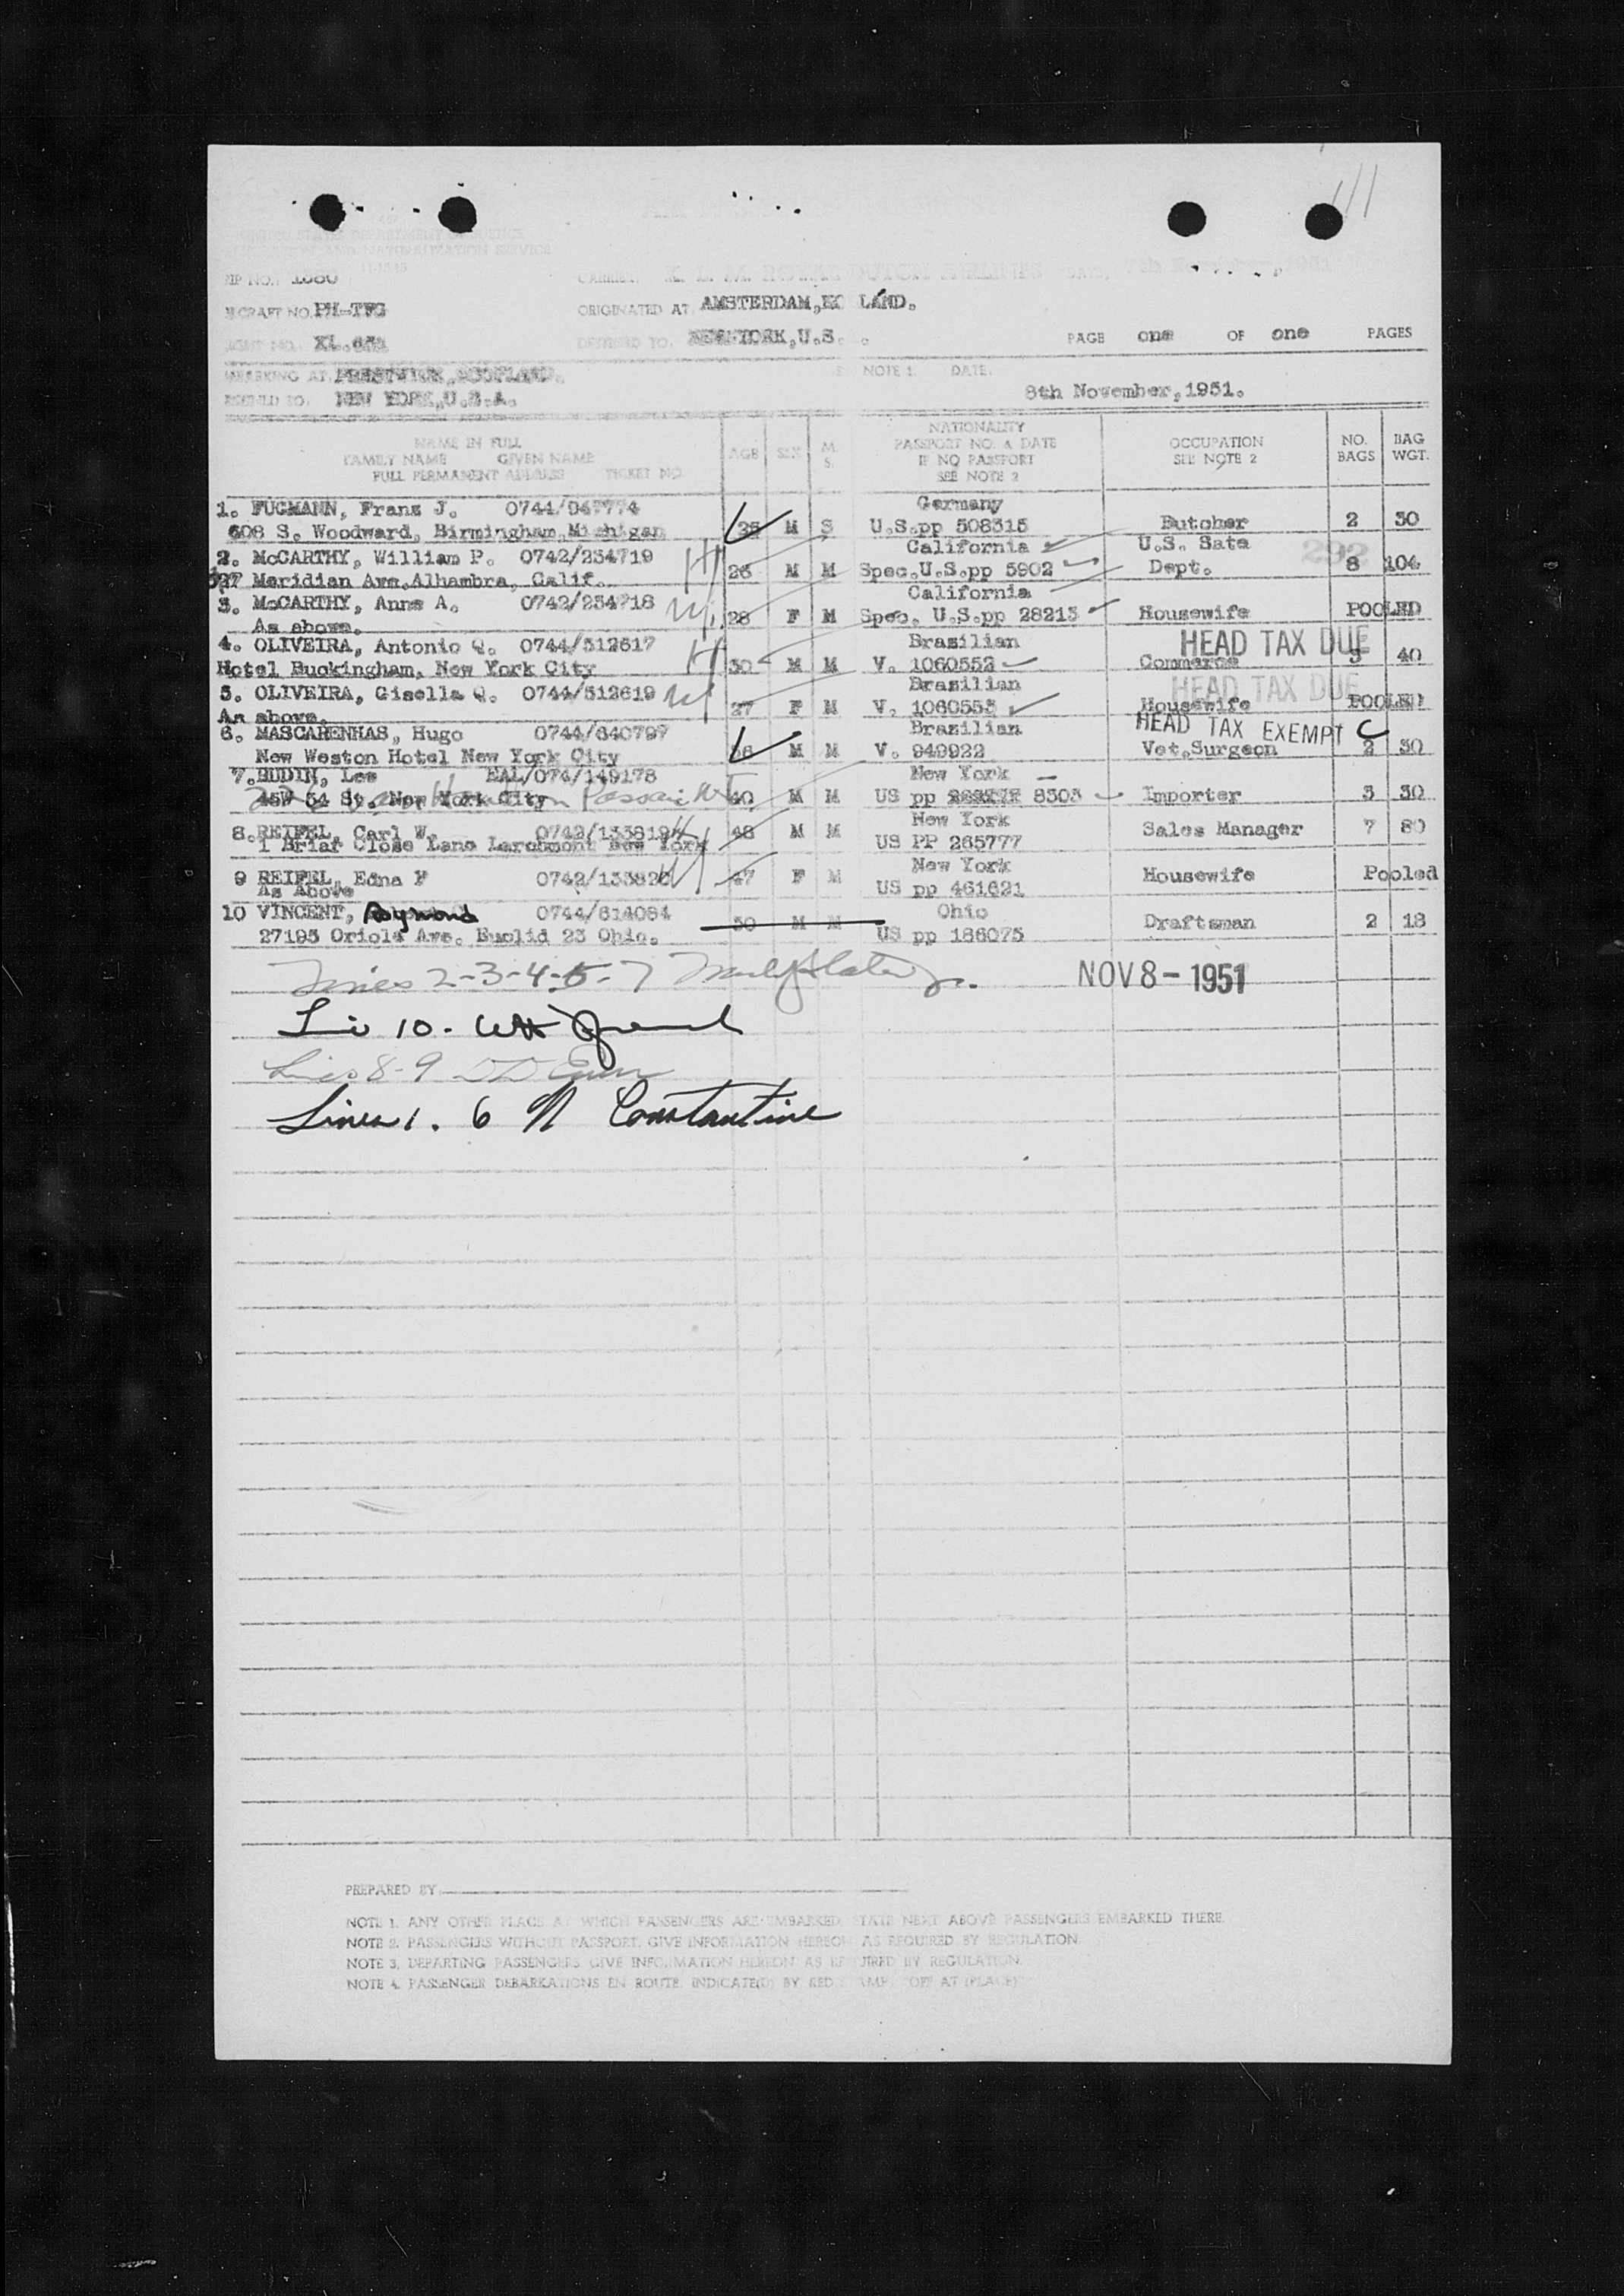 111
UNITED STATES DEPARTMENT OF JUSTICE
IMMIGRATION AND NATURALIZATION SERVICE
CARRIER K. L. M. ROYAL DUTCH AIRLINES DATE, 7th November, 1951
CRAFT NO. PH-TFG ORIGINATED AT AMSTERDAM, LAND.
XL. NEW YORK, U.S. PAGE one OF one PAGES
BARKING AT PRESTWICK, SCOTLAND. NOTE 1. DATE.
NEW YORK, U.S.A. 8th November, 1951.
NAME IN FULL
FAMILY NAME GIVEN NAME
FULL PERMANENT ADDRESS TICKET NO.
AGE SEX M. S.
NATIONALITY
PASSPORT NO. & DATE
IF NO PASSPORT
SEE NOTE 2
OCCUPATION
SEE NOTE 2
NO. BAGS
BAG WGT.
1. FUGMANN, Franz J. 0744/047774 Germany
608 S. Woodward, Birmingham, Michigan 25 M S U.S.pp 508315 Butcher 2 30
2. McCARTHY, William P. 0742/254719 H California U.S. Sate 292
527 Meridian Ave. Alhambra, Calif. 26 M M Spec. U.S.pp 5902 Dept. 8 104
3. McCARTHY, Anne A. 0742/254718 W California
As above. 28 F M Spec. U.S.pp 28213 Housewife POOLED
4. OLIVEIRA, Antonio Q. 0744/512617 H Brazilian HEAD TAX DUE
Hotel Buckingham, New York City 30 M M V. 1060552 Commerce 3 40
5. OLIVEIRA, Gisella Q. 0744/512619 W Brazilian HEAD TAX DUE
As above. 27 F M V. 1060553 Housewife POOLED
6. MASCARENHAS, Hugo 0744/640797 Brazilian HEAD TAX EXEMPT C
New Weston Hotel New York City 36 M M V. 949922 Vet. Surgeon 2 30
7. BUDIN, Lee EAL/074/149178 New York
45W 54 St. New York City Passaic NJ 40 M M US pp 8303 Importer 3 30
8. REIFEL, Carl W. 0742/133819 H 48 M M New York Sales Manager 7 80
1 Briar Close Lane Larchmont New York US PP 265777
9 REIFEL, Edna F 0742/133820 W 47 F M New York Housewife Pooled
As Above US pp 461621
10 VINCENT, Raymond 0744/614084 30 M M Ohio Draftsman 2 18
27195 Oriole Ave. Euclid 23 Ohio. US pp 186075
Lines 2-3-4-5-7 Jr. NOV 8 - 1951
10.
8-9
Lines 1. 6 N Constantine
PREPARED BY
NOTE 1. ANY OTHER PLACE AT WHICH PASSENGERS ARE EMBARKED STATE NEXT ABOVE PASSENGERS EMBARKED THERE.
NOTE 2. PASSENGERS WITHOUT PASSPORT, GIVE INFORMATION HEREON AS REQUIRED BY REGULATION.
NOTE 3. DEPARTING PASSENGERS GIVE INFORMATION HEREON AS REQUIRED BY REGULATION.
NOTE 4. PASSENGER DEBARKATIONS EN ROUTE, INDICATE(D) BY RED STAMP "OFF AT (PLACE)"